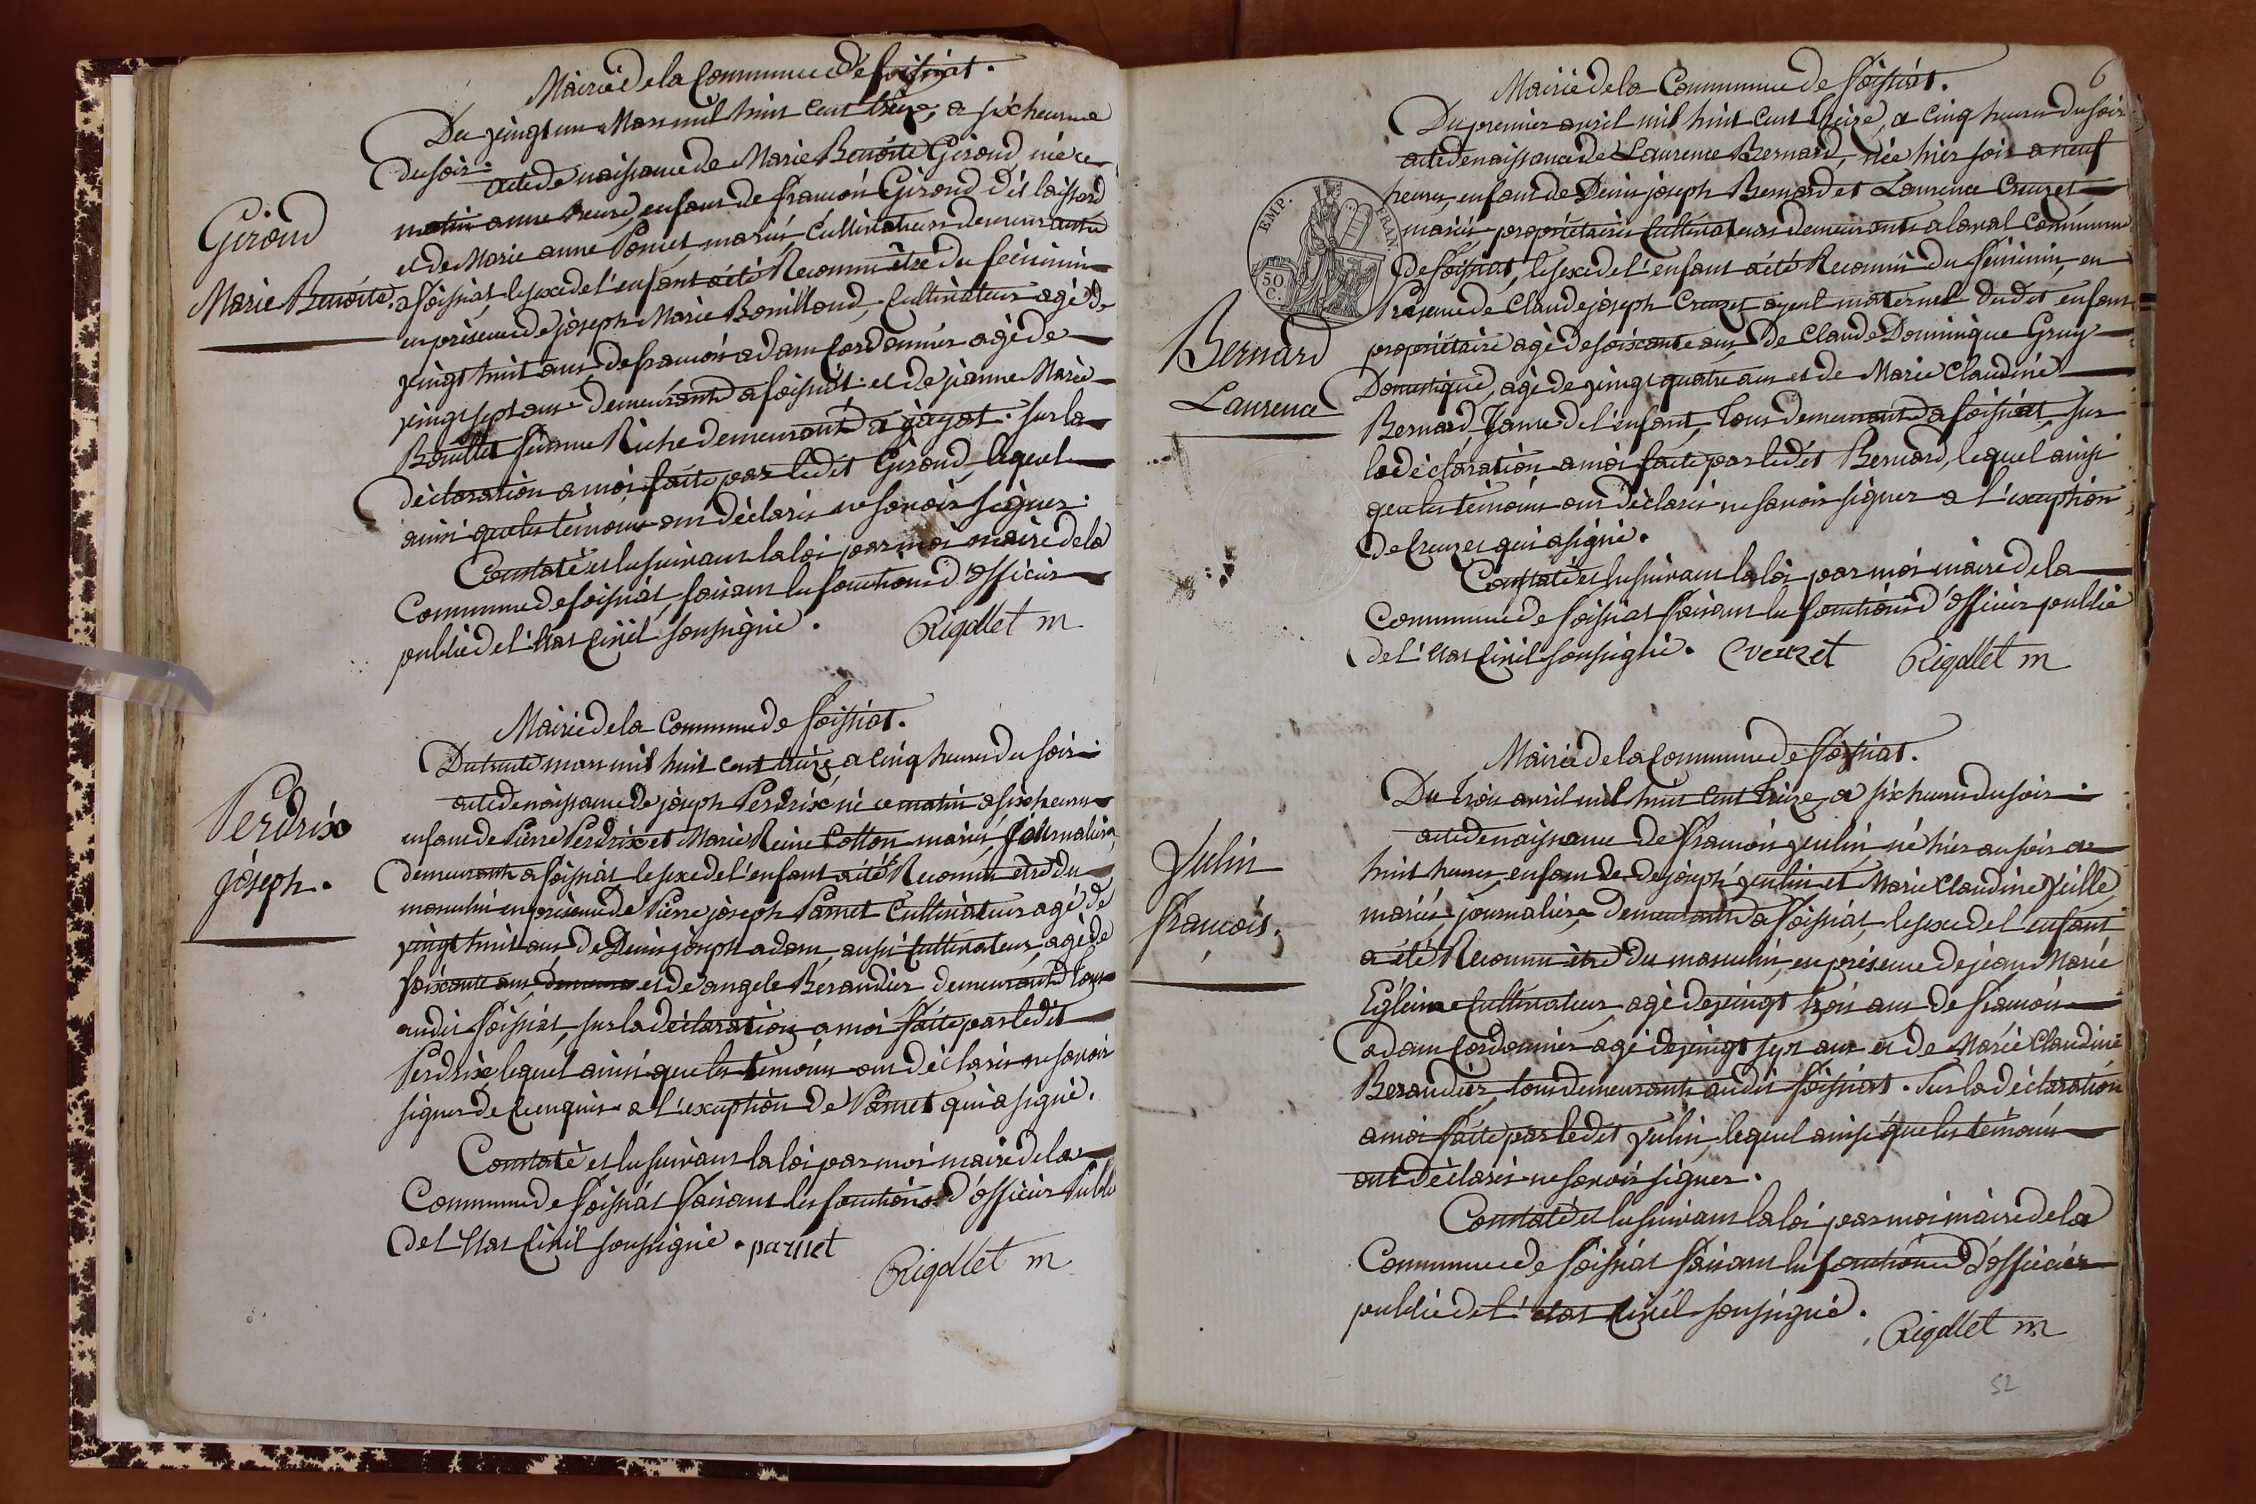 Mairie de la Commune de foissiat.
Du vingt un Mars mil huit cent treize, a six heures
du soir.
acte de naissance de Marie Benoite Giroud née ce
matin a une heure, enfant de francois Giroud dit laissard
et de Marie anne Poncet, mariés, Cultivateurs demeurants
Giroud
Marie Benoite.
a foissiat, le sexe de l'enfant a été Reconnu être du féminin
en présence de joseph Marie Bouilloud, Cultivateur agé de
vingt huit ans, de francois adam Cordonnier agé de
vingt sept ans demeurants a foissiat. et de jeanne Marie
Bouillet femme Riche demeurant a jayat. sur la
déclaration a moi faite par ledit Giroud, lequel
ainsi que les témoins ont déclarés ne savoir signer.
Constaté et lu suivant la loi par moi maire de la
Commune de foissiat, faisant les fonctions d'officier
public de l'Etat Civil soussigné.
Rigollet m
Mairie de la Commune de foissiat.
Du trente mars mil huit cent treize, a cinq heures du soir.
acte de naissance de joseph Perdrix, né ce matin a six heures
enfant de Pierre Perdrix et Marie Reine Cotton mariés, journaliers,
Perdrix
joseph.
demeurants a foissiat le sexe de l'enfant a été Reconnu etre du
masculin en présence de Pierre joseph Parnet Cultivateur agé de
vingt huit ans, de Denis joseph adam, aussi Cultivateur, agé de
soixante ans et de angele Beraudier demeurants tous
audit foissiat, sur la déclaration a moi faite par ledit
Perdrix lequel ainsi que les témoins ont déclarés ne savoir
signer de ce enquis a l'exception de Parnet qui a signé.
Constaté et lu suivant la loi par moi maire de la
Commune de foissiat faisant les fonctions d'officier Public
de l'Etat Civil soussigné. parnet
Rigollet m
6
Mairie de la Commune de foissiat.
Du premier avril mil huit cent treize, a cinq heures du soir
acte de naissance de Laurence Bernard, née hier soir a neuf
heures, enfant de Denis joseph Bernard et Laurence Creuzet
mariés, propriétaires Cultivateurs demeurants a laval Commune
EMP. FRAN.
50 C.
de foissiat, le sexe de l'enfant a été Reconnu du féminin, en
Présence de Claude joseph Creuzet ayeul maternel dudit enfant
Bernard
Laurence
propriétaire agé de soixante ans, de Claude Dominique Gruy
Domestique, agé de vingt quatre ans et de Marie Claudine
Bernard Tante de l'enfant, tous demeurants a foissiat, sur
la déclaration a moi faite par ledit Bernard, lequel ainsi
que les témoins ont déclarés ne savoir signer a l'exception
de Creuzet qui a signé.
Constaté et lu suivant la loi par moi maire de la
Commune de foissiat faisant les fonctions d'officier public
de l'Etat Civil soussigné. Creuzet Rigollet m
Mairie de la Commune de foissiat.
Du trois avril mil huit cent treize, a six heures du soir.
acte de naissance de francois yvulin, né hier au soir a
Yulin
francois.
huit heures, enfant de de joseph yvulin et Marie Claudine Veille,
mariés, journaliers demeurants a foissiat, le sexe de l'enfant
a été Reconnu être du masculin, en présence de jean Marie
Cultivateur, agé de vingt trois ans, de francois
adam Cordonnier agé de vingt sept ans et de Marie Claudine
Beraudier, tous demeurants audit foissiat. Sur la déclaration
a moi faite par ledit yvulin, lequel ainsi que les témoins
ont déclarés ne savoir signer.
Constaté et lu suivant la loi par moi maire de la
Commune de foissiat faisant les fonctions d'officier
public de l'etat Civil soussigné.
Rigollet m
52